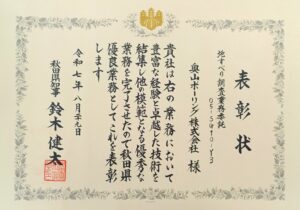 表彰状
地すべり調査業務委託
奥山ボーリング株式会社 様
貴社は右の業務において
豊富な経験と卓越した技術を
結集し他の模範となる優秀な
業務を完了させたので秋田県
優良業務としてこれを表彰
します
令和七年八月 九日
秋田県知事 鈴木健太